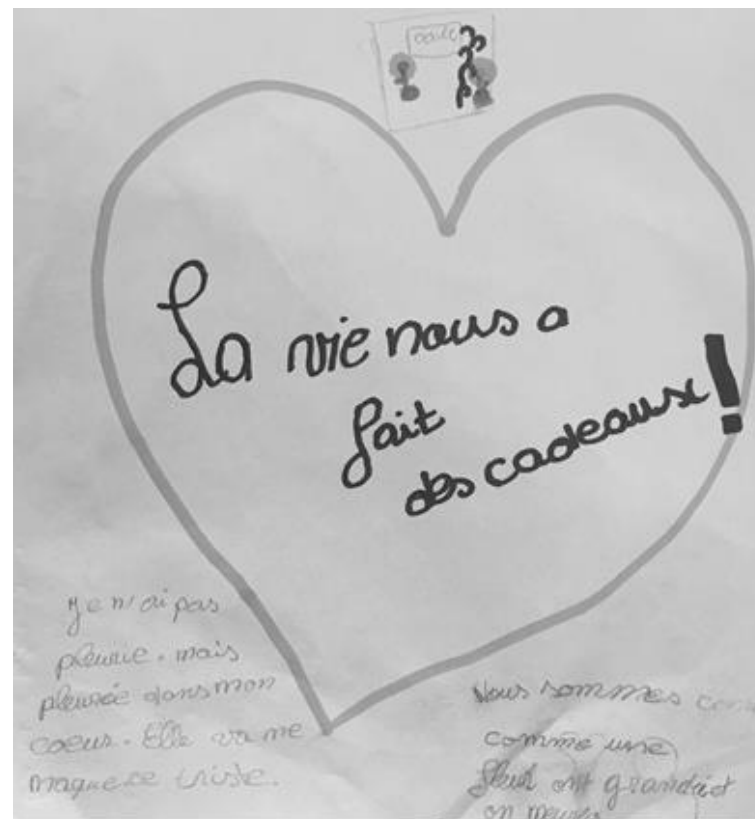 La vie nous a
fait
des cadeaux!
Je n'ai pas
pleurie. mais
pleurée dans mon
coeur. Elle va me
maquere triste.
Nous sommes com
comme une
fleur ont grandit
on meurs